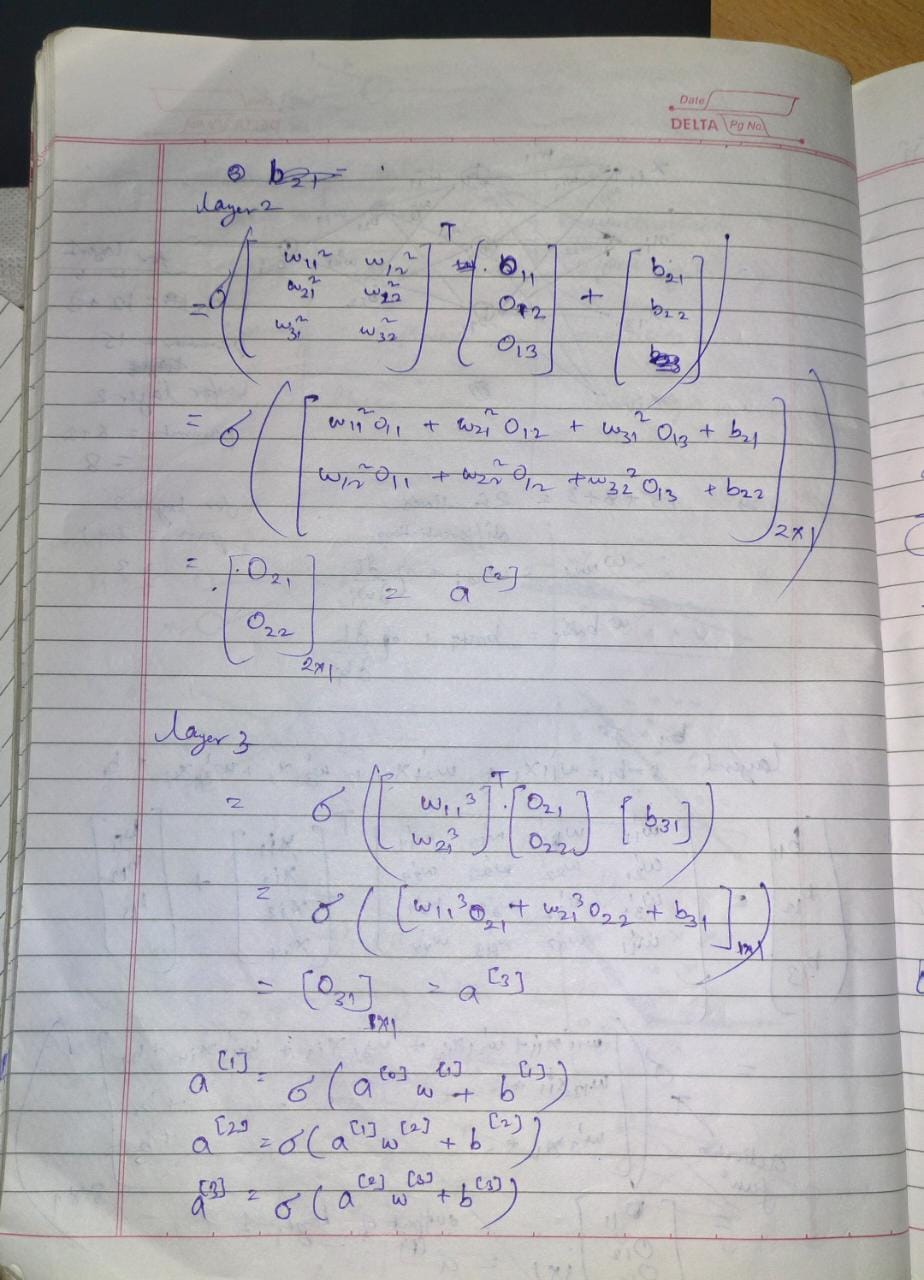 Date
DELTA Pg No.
b21 =
Layer 2
= σ ( [ w11² w12² ; w21² w22² ; w31² w32² ]ᵀ . [ O11 ; O12 ; O13 ] + [ b21 ; b22 ; b23 ] )
= σ ( [ w11² O11 + w21² O12 + w31² O13 + b21
w12² O11 + w22² O12 + w32² O13 + b22 ] 2x1 )
= [ O21 ; O22 ] 2x1 = a^[2]
Layer 3
= σ ( [ w11³ ; w21³ ]ᵀ . [ O21 ; O22 ] [ b31 ] )
= σ ( [ w11³ O21 + w21³ O22 + b31 ] 1x1 )
= [ O31 ] 1x1 = a^[3]
a^[1] = σ ( a^[0] w^[1] + b^[1] )
a^[2] = σ ( a^[1] w^[2] + b^[2] )
a^[3] = σ ( a^[2] w^[3] + b^[3] )